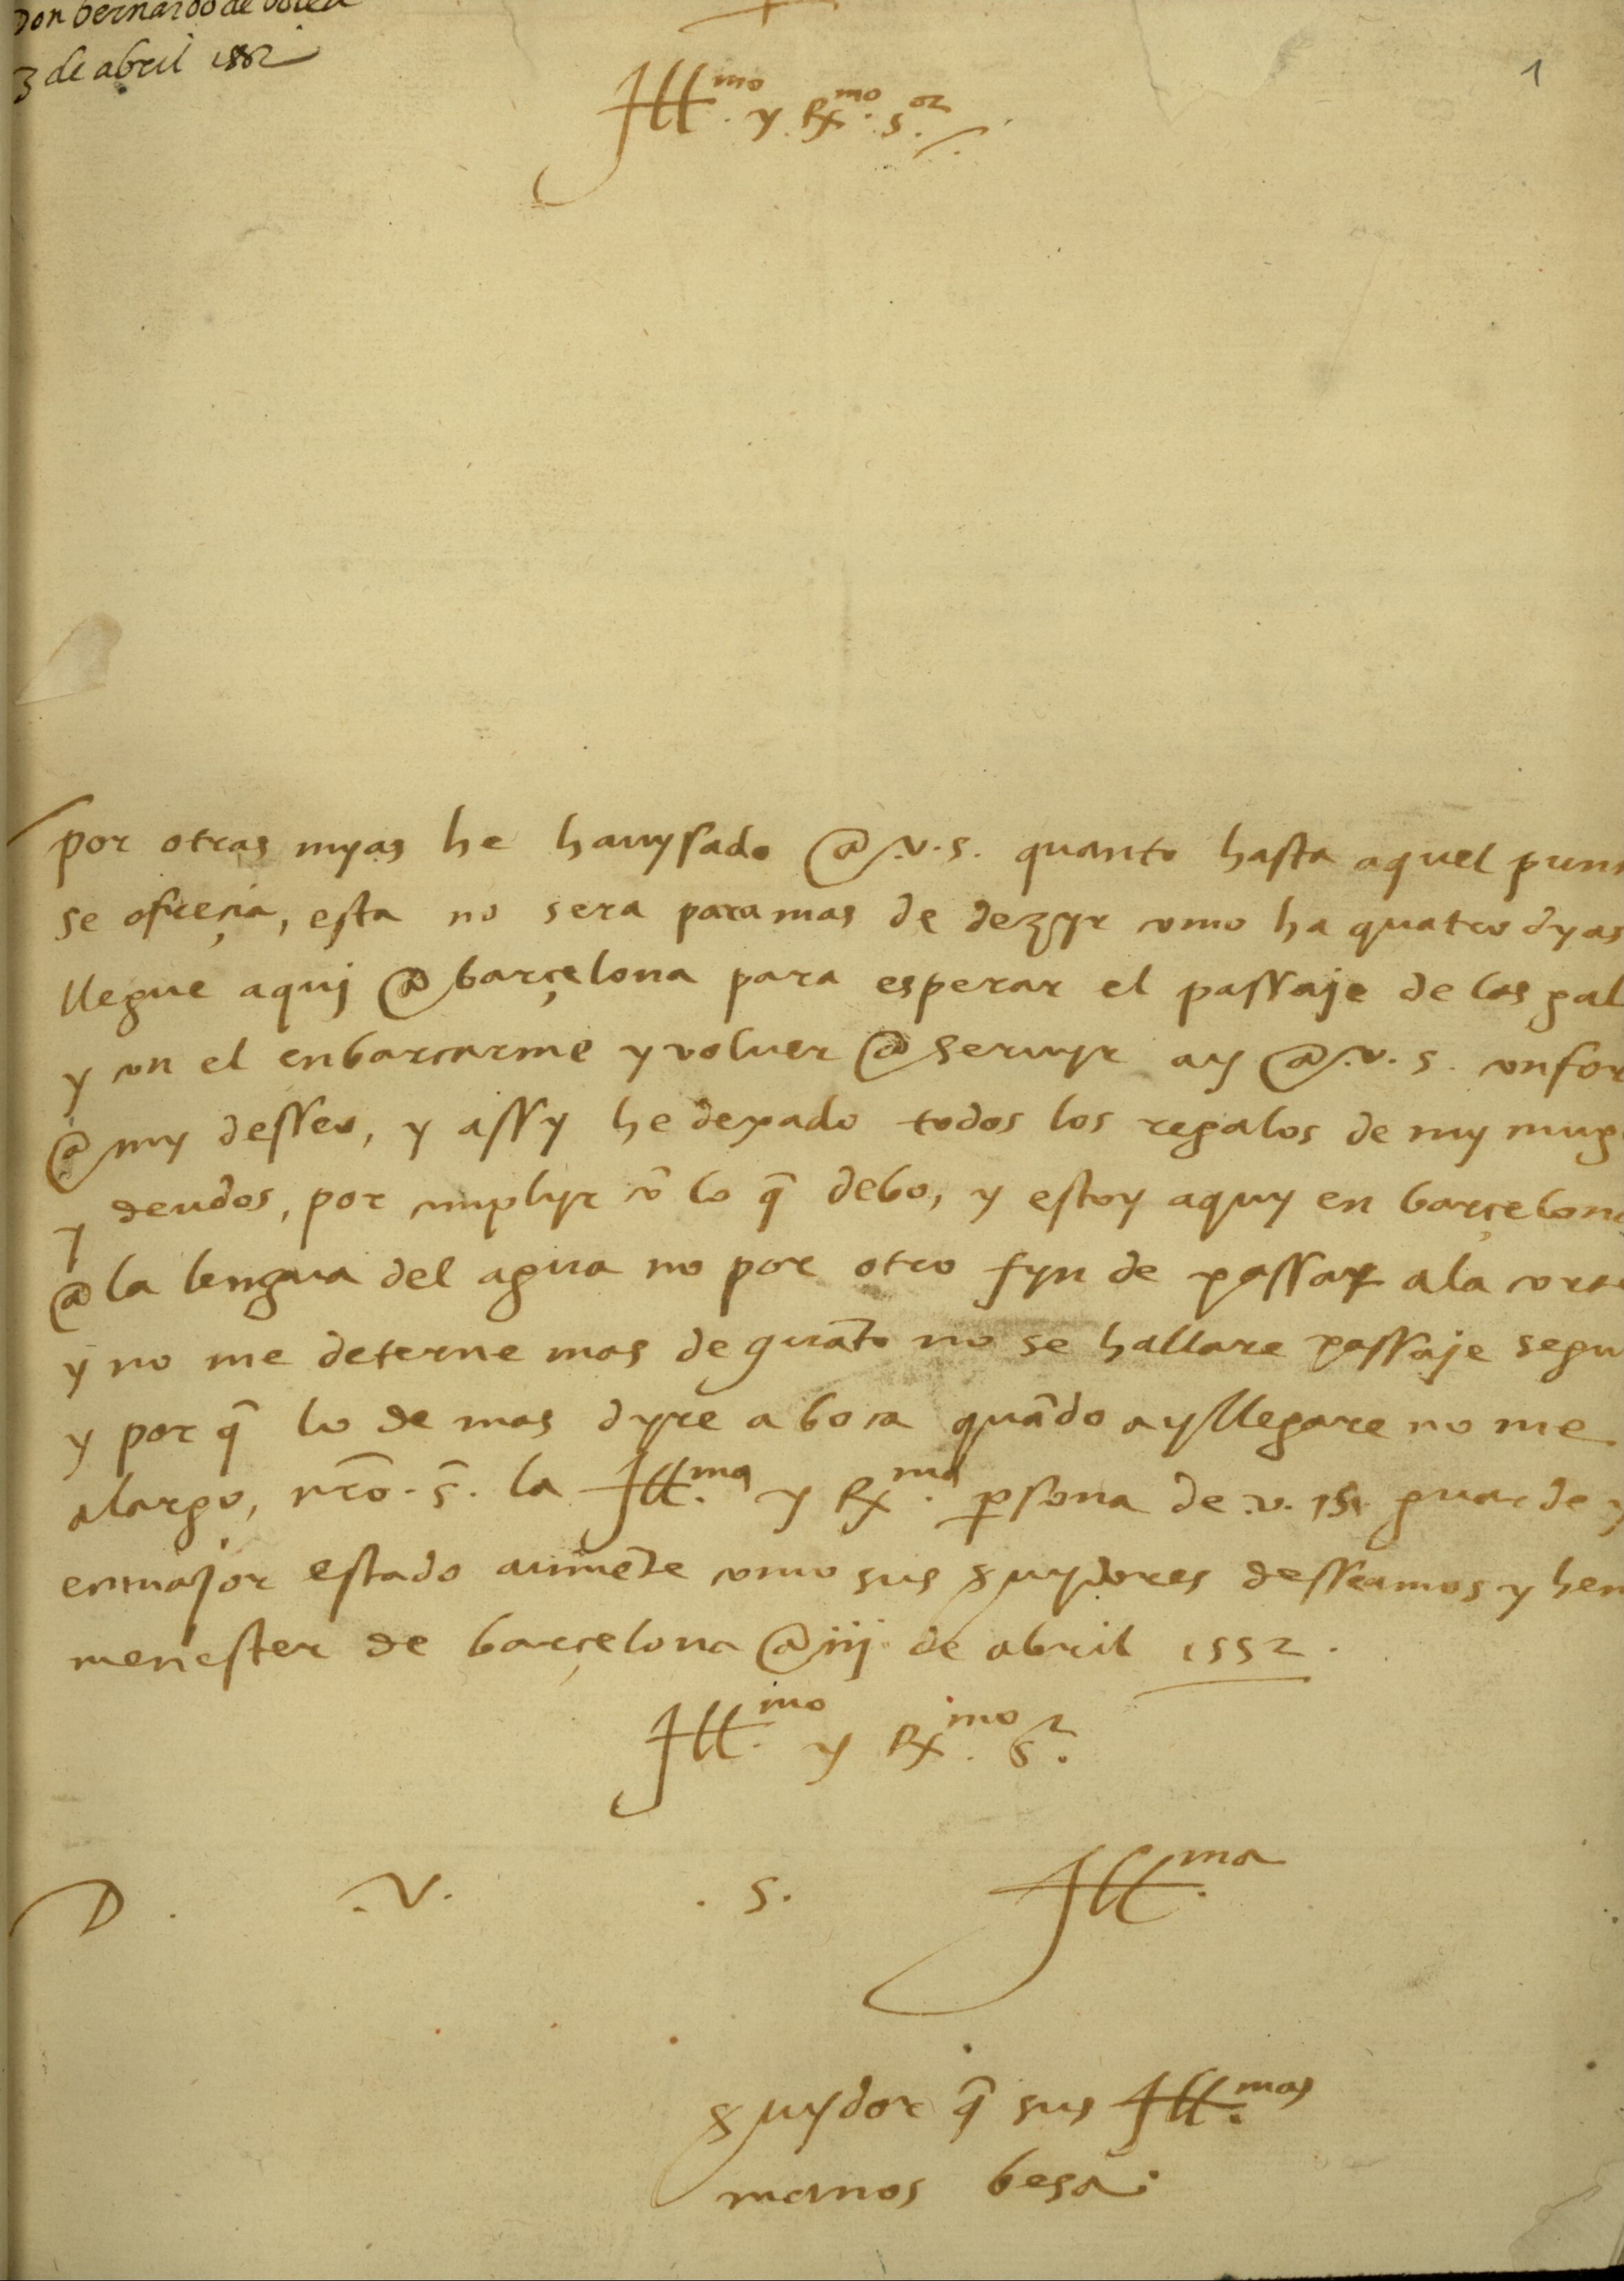 Don bernardo de bolea
3 de abril 1552
1
Ill.mo y R.mo s.or
por otras myas he hauysado @ .v.s. quanto hasta aquel pun
se ofreçia, esta no sera para mas de dezyr como ha quatro dyas
llegue aquj @ barçelona para esperar el passaje de las gal
y con el enbarcarme y voluer @ seruyr ay @ .v.s. confor
@ my desseo, y assy he dexado todos los regalos de my mug
y deudos, por cumplyr cō lo q̄ debo, y estoy aquy en barçelona
@ la lengua del agua no por otro fyn de passar a la corte
y no me deterne mas de quāto no se hallare passaje segu
y por q̄ lo de mas dyre a boca quādo ay llegare no me
alargo, nr̄o. s̄. la Ill.ma y R.ma p̱sona de .v. s. guarde y
en major estado aumēte como sus s̱uydores desseamos y hem
menester de barçelona @ iij de abril 1552.
Ill.mo y R.mo s.r
D. .V. .S. Ill.ma
s̱uydor q̄ sus Ill.mas
manos besa.